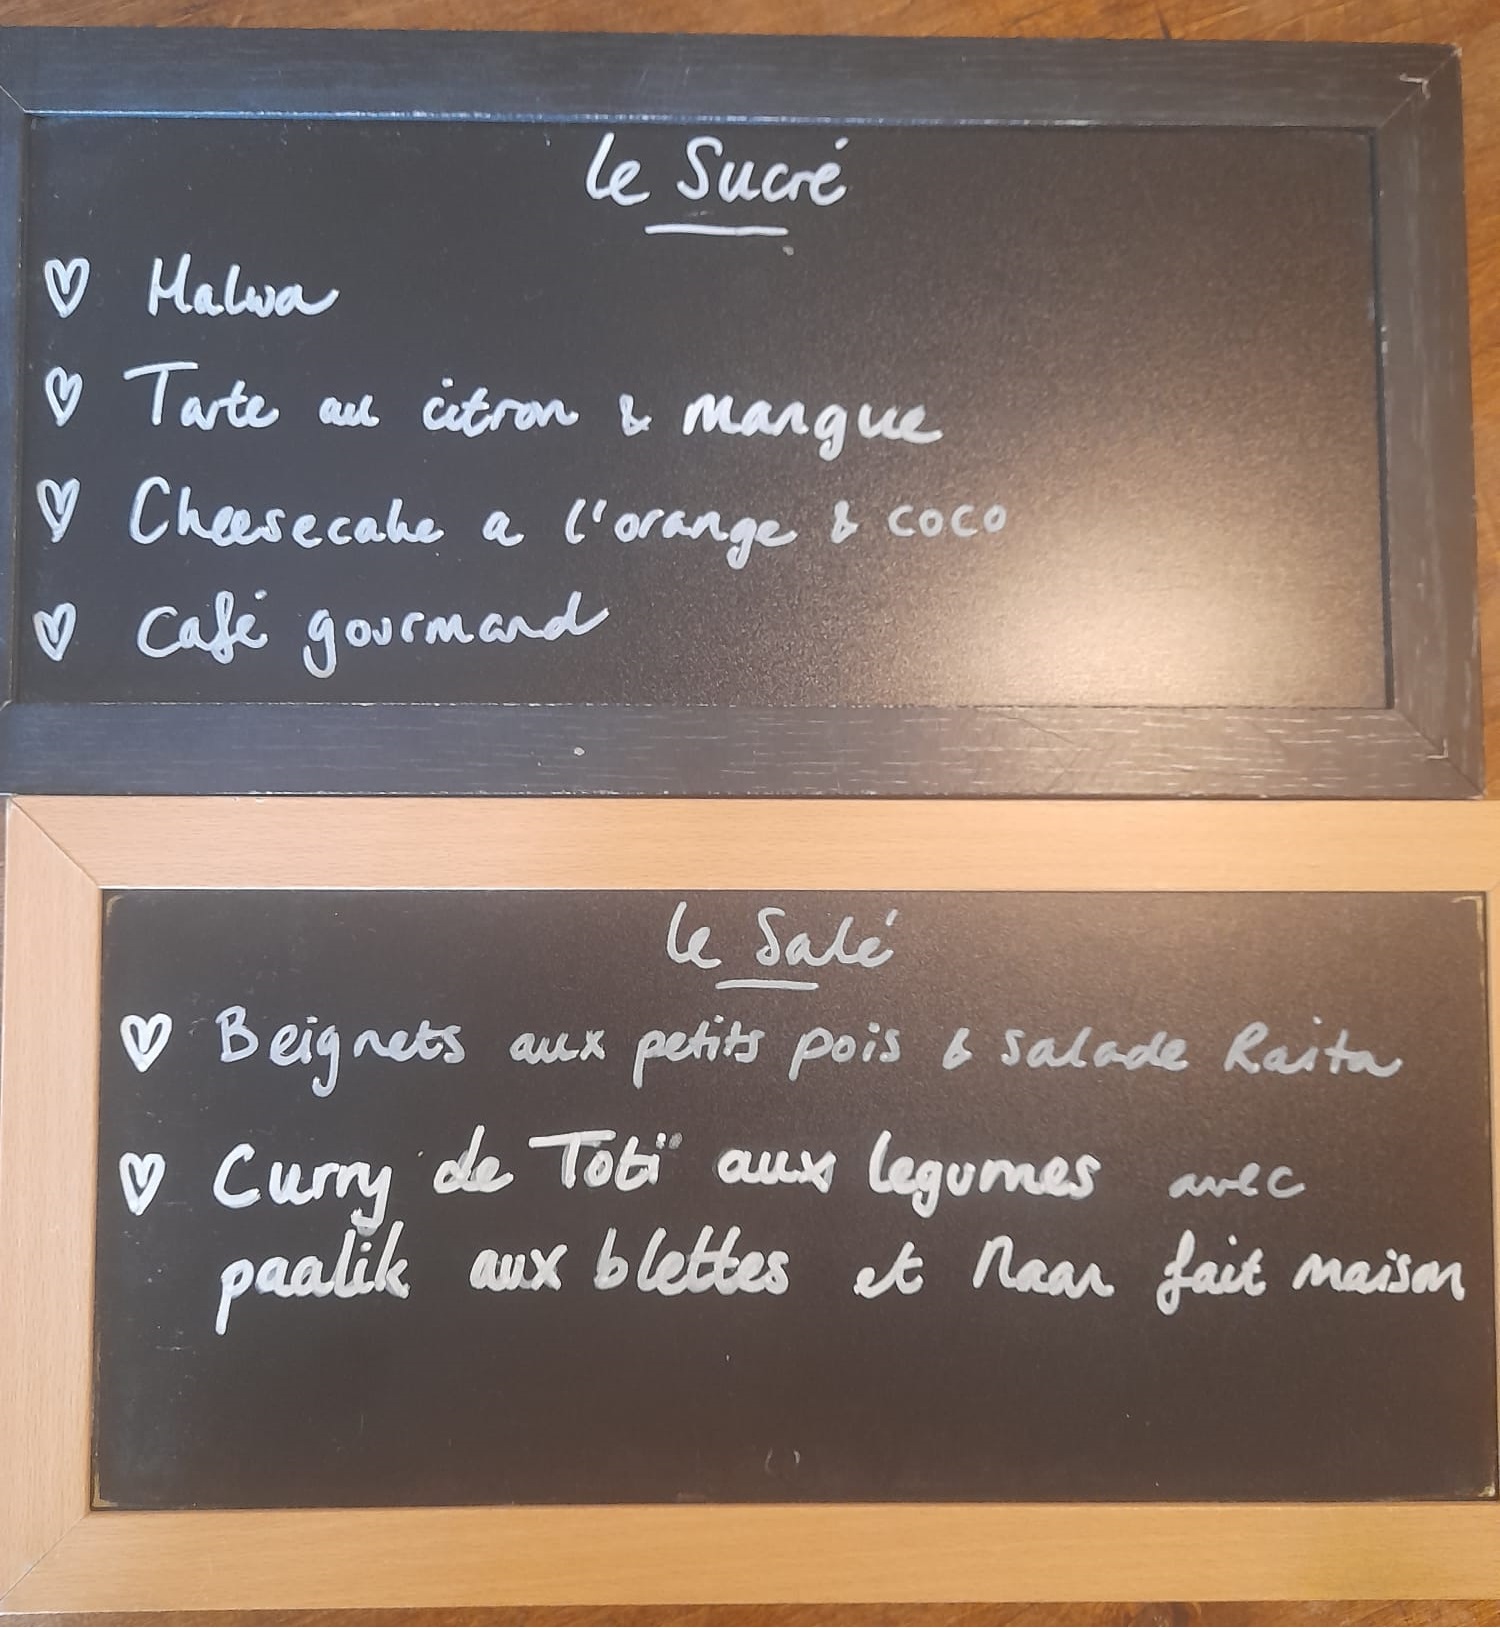 Le Sucré
Halwa
Tarte au citron & mangue
Cheesecake a l'orange & coco
Café gourmand
Le Salé
Beignets aux petits pois & salade Raita
Curry de Tobi aux legumes avec
paalik aux blettes et Naan fait maison